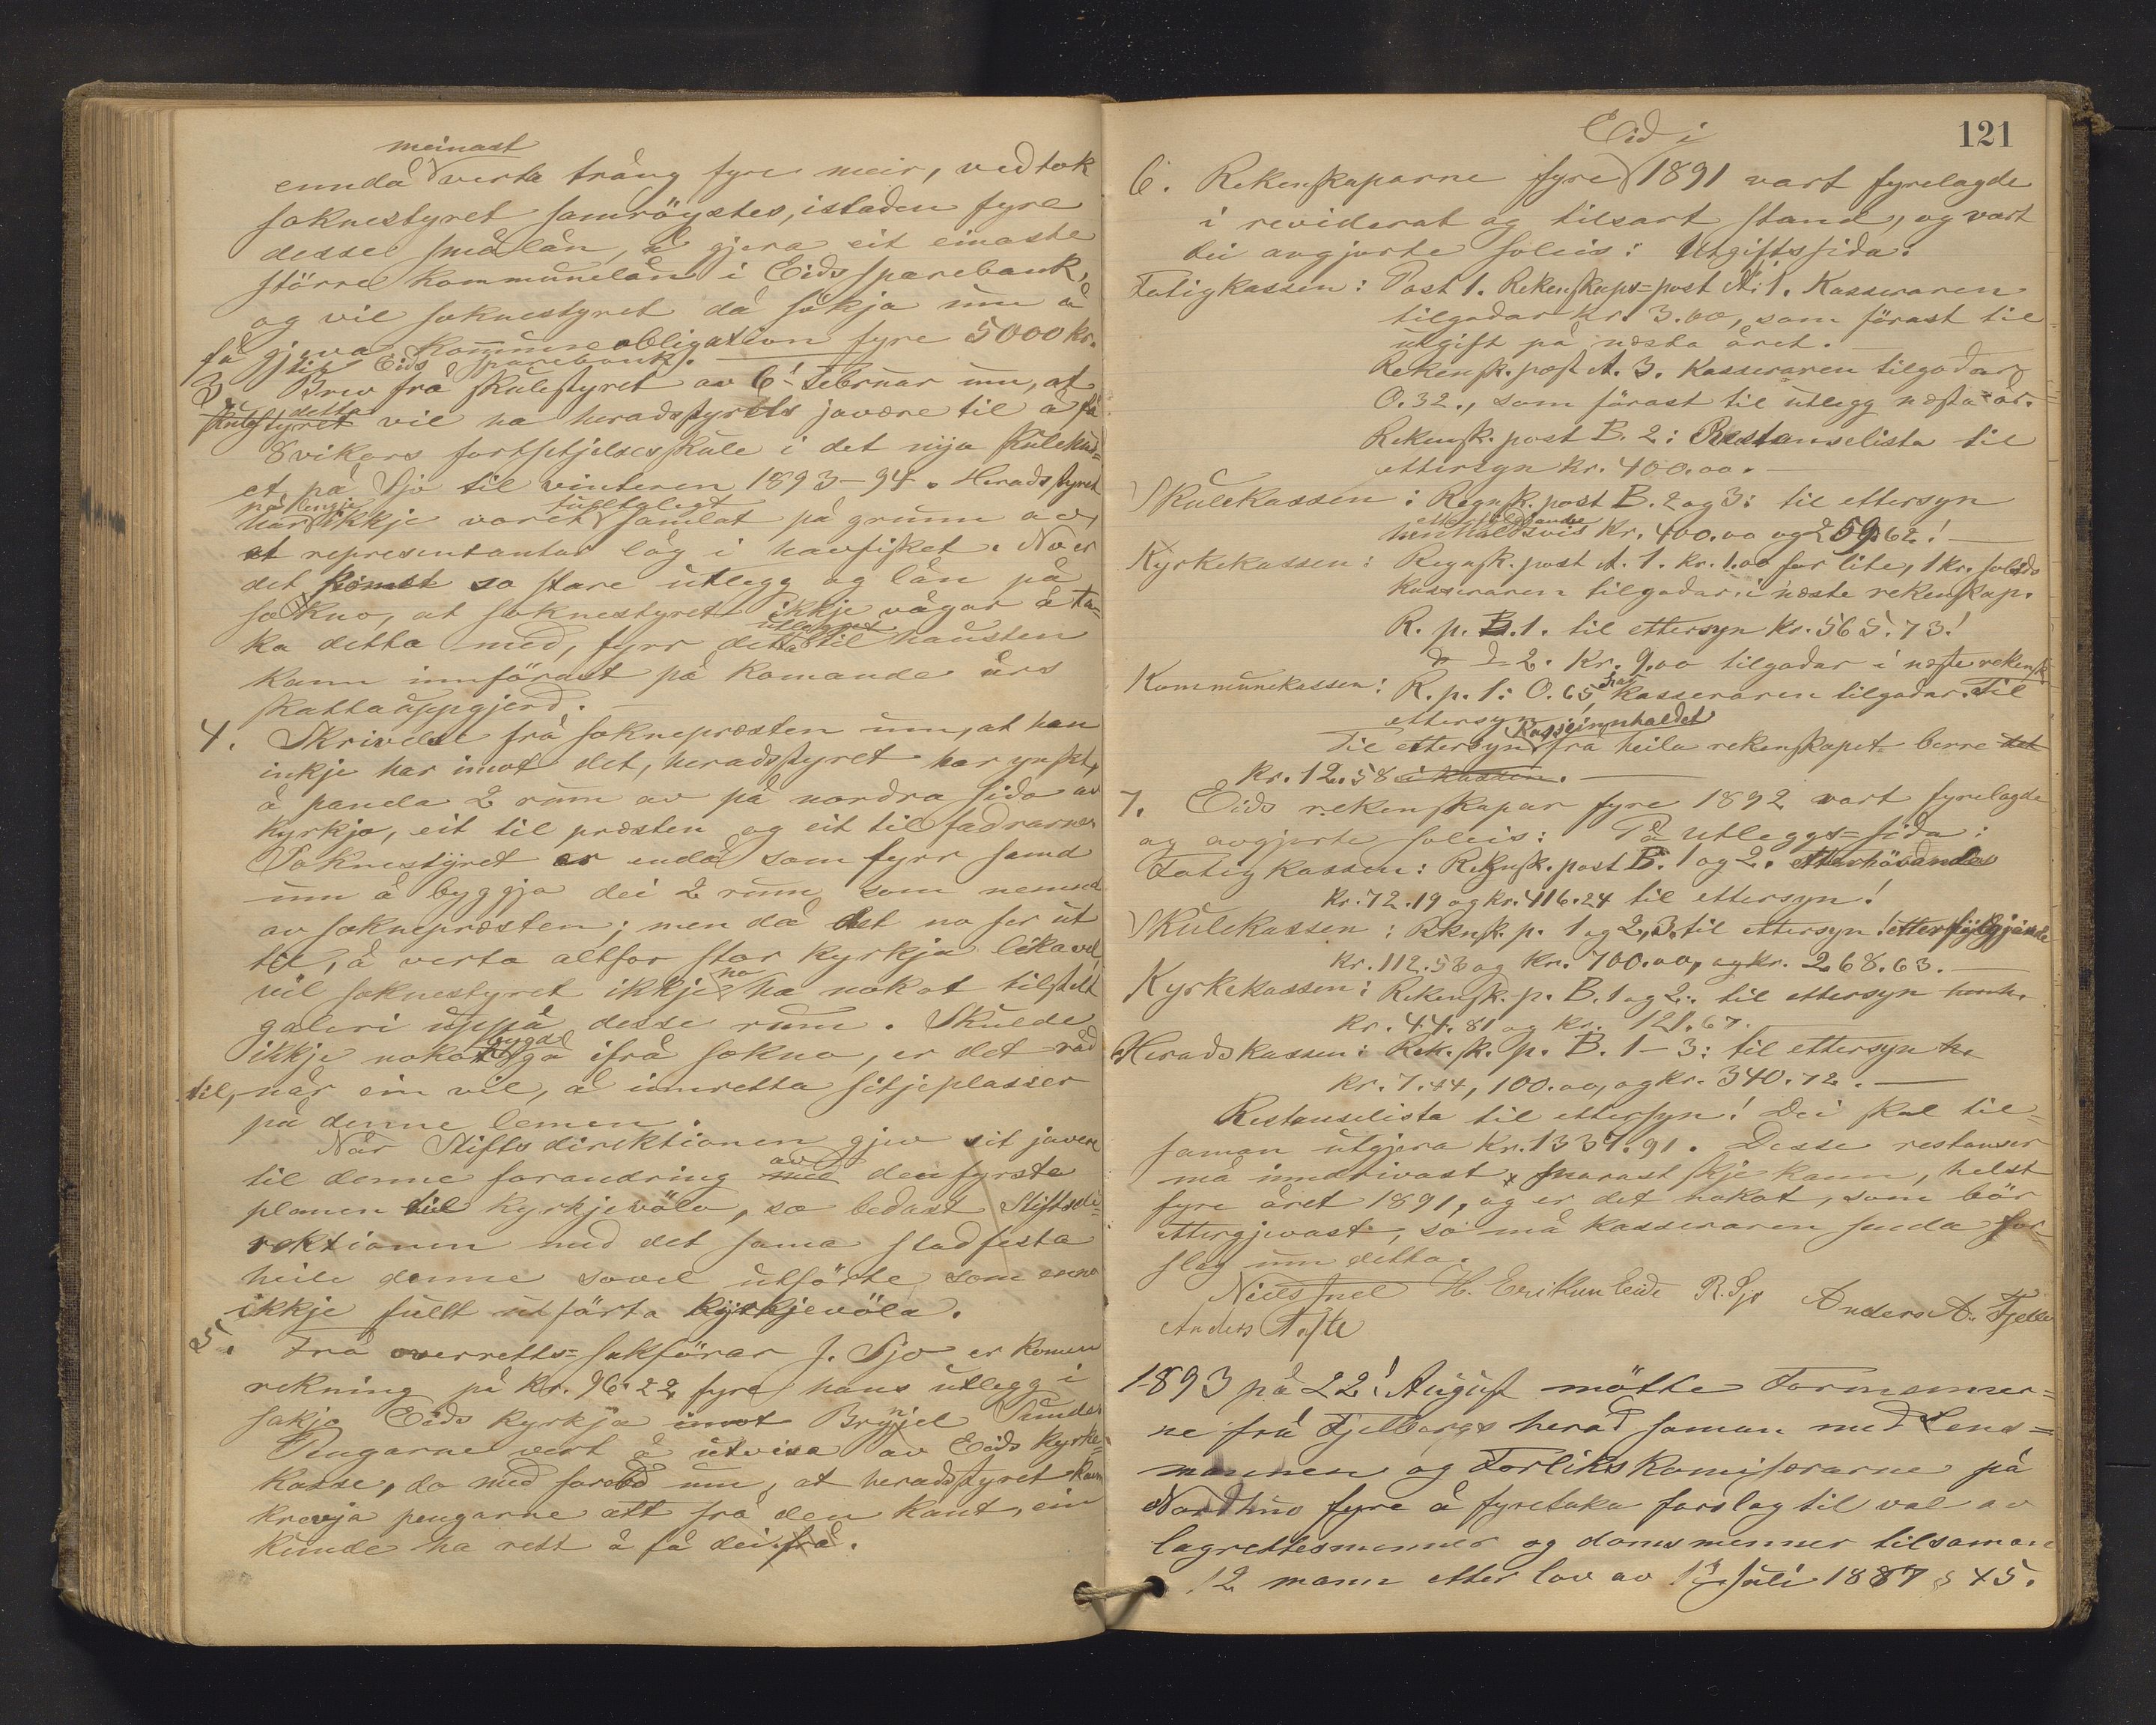 meinast
enndå verta trång fyre meir, vedtok
soknestyret samröystes, istaden fyre
desse smålån, å gjera eit einaste
större kommunelån i Eids sparebank,
og vil soknestyret då sökja um å
få gjeva kommuneobligation fyre 5000 kr.
til Eids sparebank.
3. Brev frå skulestyret av 6! Februar um, at
detta
skulestyret vil ha heradsstyrets javære til å få
8 vikors fortsetjelsesskule i det nyja skulehus=
et på Sjo til vinteren 1893-94. Heradsstyret
på lengje fulltalegt
har ikkje voret samlat på grunn av,
at representantar låg i havfisket. No er
det komet so store utlegg og lån på
sokno, at soknestyret ikkje vågar å ta=
utlegget
ka detta med, fyrr detta til hausten
kann innförast på komande års
skattauppgjerd.
4. Skrivelse frå soknepræsten um, at han
inkje har imot det, heradsstyret har ynskt,
å panela 2 rum av på nordra sida av
kyrkja, eit til præsten og eit til fadrarne.
Soknestyret er endå som fyrr samd
um å byggja dei 2 rum som nemnd
av soknepræsten; men då det no ser ut
til, å verta altfor stor kyrkja likavel
no
vil soknestyret ikkje ha nokot tilstelt
galeri uppå desse rum. Skulde
bygdel
ikkje nokot gå ifrå sokno, er det råd
til, når ein vil, å innretta sitjeplasser
på denne lemen.
Når Stiftsdirektionen gjev sit javære
av
til denne forandring med den fyrste
planen til kyrkjevöla, so bedast Stiftsdi=
rektionen med det sama stadfesta
heile denne sovel utförte som enno
ikkje fullt utförta kyrkjevöla.
5. Frå overretts=sakförar J. Sjo er komen
rekning på kr. 96.22 fyre hans utlegg i
sakja Eids kyrkja imot Brynjel Sunde.
Pengarne vert å utvisa av Eids kyrke=
kasse, da med forebod um, at heradsstyret kann
krevja pengarne att frå den kant, ein
kunde ha rett å få dei frå.
121
Eid i
6. Rekenskaparne fyre 1891 vart fyrelagde
i reviderat og tilsart stand, og vart
dei avgjorte soleis: Utgiftssida:
Fatigkassen: Post 1. Rekenskaps=post A. 1. Kasseraren
tilgodar kr. 3.00, som förast til
utgift på næsta året.
Rekensk. post A. 3. Kasseraren tilgodar
0.32., som förast til utlegg næsta år.
Rekensk. post B. 2: Restanselista til
ettersyn kr. 400.00.
Skulekassen: Regnsk. post B. 2 og 3: til ettersyn
henholdsvis kr. 400.00 og 259.62!
Kyrkekassen: Regnsk. post A. 1. kr. 1.00 for lite, 1 kr. soleds
kasseraren tilgodar i næste rekenskap.
R. p. B. 1. til ettersyn kr. 565.73!
2. kr. 9.00 tilgodar i næste rekensk.
Kommunekassen: R. p. 1: 0.65 har kasseraren tilgodar. Til
ettersyn
Kasseinnhaldet
Til ettersyn frå heila rekenskapet berre det
kr. 12.58 i kassen.
7. Eids rekenskapar fyre 1892 vart fyrelagde
og avgjorte soleis: På utleggs=sida:
Fatigkassen: Regnsk. post B. 1 og 2. etterhövandes
kr. 72.19 og kr. 416.24 til ettersyn!
Skulekassen: Rknsk. p. 1 og 2, 3. til ettersyn! etterfylgjande
kr. 112.58 og kr. 700.00, og kr. 268.63.
Kyrkekassen: Rekensk. p. B. 1 og 2: til ettersyn
kr. 44.81 og kr. 121.67.
Heradskassen: Rek. sk. p. B. 1-3: til ettersyn
kr. 7.44, 100.00, og kr. 340.72.
Restanselista til ettersyn! Dei skal til=
saman utgjera kr. 1337.91. Desse restanser
må inndrivast snarast skje kann, helst
fyre året 1891, og er det nokot, som bör
ettergjevast, so må kasseraren senda for=
slag um detta.
Niels Juel H. Eriksen Eide R. Sjo Anders A. Fjelle
Anders Tofte
1893 på 22! August mötte Formenner=
ne frå Fjelbergs herad saman med Lens=
mannen og Forlikskomiserarne på
Nordhus fyre å fyretaka forslag til val av
lagrettesmenner og domsmenner tilsaman
12 mann etter lov av 1! Juli 1887 § 45.